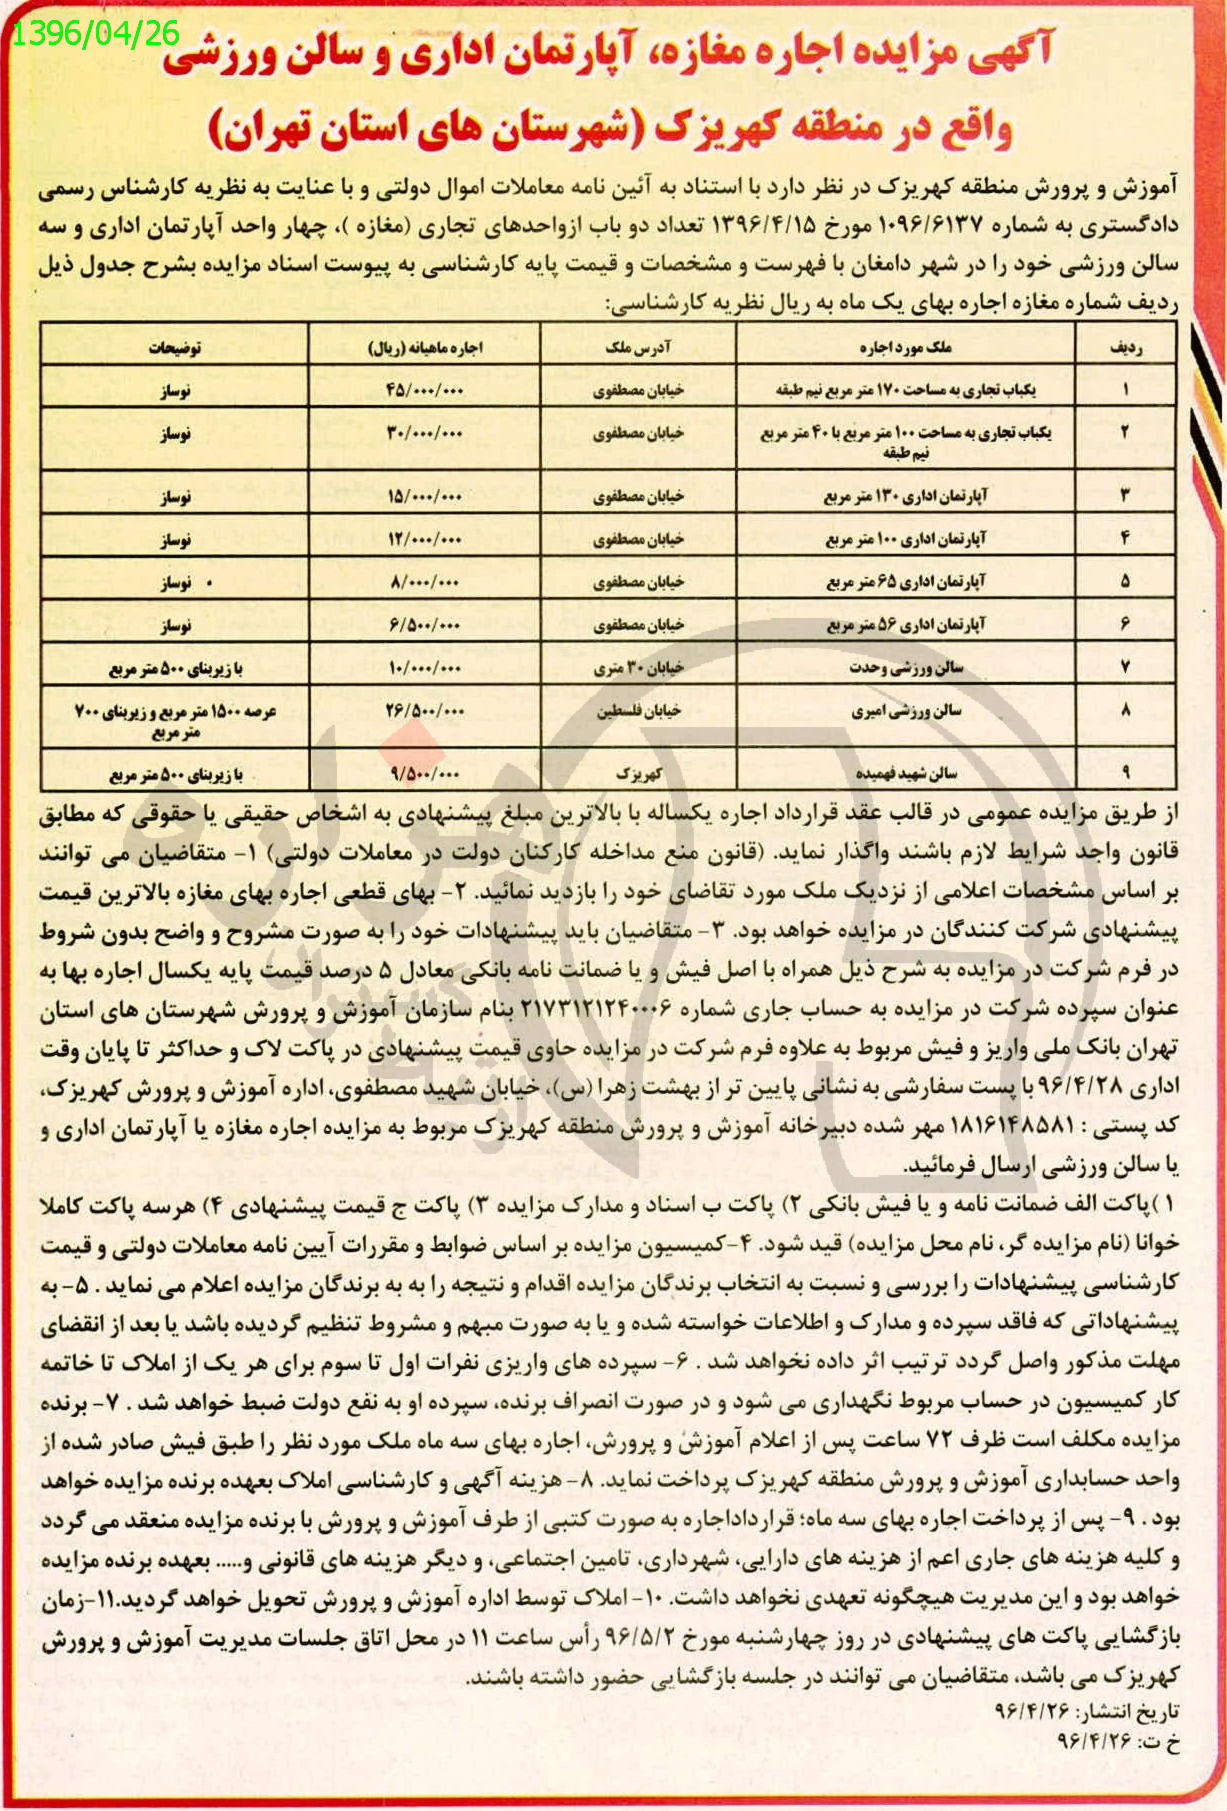 1396/04/26
آگهی مزایده اجاره مغازه، آپارتمان اداری و سالن ورزشی
واقع در منطقه کهریزک (شهرستان های استان تهران)
آموزش و پرورش منطقه کهریزک در نظر دارد با استناد به آئین نامه معاملات اموال دولتی و با عنایت به نظریه کارشناس رسمی
دادگستری به شماره ۱۰۹۶/۶۱۳۷ مورخ ۱۳۹۶/۴/۱۵ تعداد دو باب ازواحدهای تجاری (مغازه )، چهار واحد آپارتمان اداری و سه
سالن ورزشی خود را در شهر دامغان با فهرست و مشخصات و قیمت پایه کارشناسی به پیوست اسناد مزایده بشرح جدول ذیل
ردیف شماره مغازه اجاره بهای یک ماه به ریال نظریه کارشناسی:
ردیف ملک مورد اجاره آدرس ملک اجاره ماهیانه (ریال) توضیحات
۱ یکباب تجاری به مساحت ۱۷۰ متر مربع نیم طبقه خیابان مصطفوی ۴۵/۰۰۰/۰۰۰ نوساز
۲ یکباب تجاری به مساحت ۱۰۰ متر مربع با ۴۰ متر مربع خیابان مصطفوی ۳۰/۰۰۰/۰۰۰ نوساز
نیم طبقه
۳ آپارتمان اداری ۱۳۰ متر مربع خیابان مصطفوی ۱۵/۰۰۰/۰۰۰ نوساز
۴ آپارتمان اداری ۱۰۰ متر مربع خیابان مصطفوی ۱۲/۰۰۰/۰۰۰ نوساز
۵ آپارتمان اداری ۶۵ متر مربع خیابان مصطفوی ۸/۰۰۰/۰۰۰ نوساز
۶ آپارتمان اداری ۵۶ متر مربع خیابان مصطفوی ۶/۵۰۰/۰۰۰ نوساز
۷ سالن ورزشی وحدت خیابان ۳۰ متری ۱۰/۰۰۰/۰۰۰ با زیربنای ۵۰۰ متر مربع
۸ سالن ورزشی امیری خیابان فلسطین ۲۶/۵۰۰/۰۰۰ عرصه ۱۵۰۰ متر مربع و زیربنای ۷۰۰
متر مربع
۹ سالن شهید فهمیده کهریزک ۹/۵۰۰/۰۰۰ با زیربنای ۵۰۰ متر مربع
از طریق مزایده عمومی در قالب عقد قرارداد اجاره یکساله با بالاترین مبلغ پیشنهادی به اشخاص حقیقی یا حقوقی که مطابق
قانون واجد شرایط لازم باشند واگذار نماید. (قانون منع مداخله کارکنان دولت در معاملات دولتی) ۱- متقاضیان می توانند
بر اساس مشخصات اعلامی از نزدیک ملک مورد تقاضای خود را بازدید نمائید. ۲- بهای قطعی اجاره بهای مغازه بالاترین قیمت
پیشنهادی شرکت کنندگان در مزایده خواهد بود. ۳- متقاضیان باید پیشنهادات خود را به صورت مشروح و واضح بدون شروط
در فرم شرکت در مزایده به شرح ذیل همراه با اصل فیش و یا ضمانت نامه بانکی معادل ۵ درصد قیمت پایه یکسال اجاره بها به
عنوان سپرده شرکت در مزایده به حساب جاری شماره ۲۱۷۳۱۲۱۲۴۰۰۰۶ بنام سازمان آموزش و پرورش شهرستان های استان
تهران بانک ملی واریز و فیش مربوط به علاوه فرم شرکت در مزایده حاوی قیمت پیشنهادی در پاکت لاک و حداکثر تا پایان وقت
اداری ۹۶/۴/۲۸ با پست سفارشی به نشانی پایین تر از بهشت زهرا (س)، خیابان شهید مصطفوی، اداره آموزش و پرورش کهریزک،
کد پستی : ۱۸۱۶۱۴۸۵۸۱ مهر شده دبیرخانه آموزش و پرورش منطقه کهریزک مربوط به مزایده اجاره مغازه یا آپارتمان اداری و
یا سالن ورزشی ارسال فرمائید.
۱ )پاکت الف ضمانت نامه و یا فیش بانکی ۲) پاکت ب اسناد و مدارک مزایده ۳) پاکت ج قیمت پیشنهادی ۴) هرسه پاکت کاملا
خوانا (نام مزایده گر، نام محل مزایده) قید شود. ۴-کمیسیون مزایده بر اساس ضوابط و مقررات آیین نامه معاملات دولتی و قیمت
کارشناسی پیشنهادات را بررسی و نسبت به انتخاب برندگان مزایده اقدام و نتیجه را به به برندگان مزایده اعلام می نماید . ۵- به
پیشنهاداتی که فاقد سپرده و مدارک و اطلاعات خواسته شده و یا به صورت مبهم و مشروط تنظیم گردیده باشد یا بعد از انقضای
مهلت مذکور واصل گردد ترتیب اثر داده نخواهد شد . ۶- سپرده های واریزی نفرات اول تا سوم برای هر یک از املاک تا خاتمه
کار کمیسیون در حساب مربوط نگهداری می شود و در صورت انصراف برنده، سپرده او به نفع دولت ضبط خواهد شد . ۷- برنده
مزایده مکلف است ظرف ۷۲ ساعت پس از اعلام آموزش و پرورش، اجاره بهای سه ماه ملک مورد نظر را طبق فیش صادر شده از
واحد حسابداری آموزش و پرورش منطقه کهریزک پرداخت نماید. ۸- هزینه آگهی و کارشناسی املاک بعهده برنده مزایده خواهد
بود . ۹- پس از پرداخت اجاره بهای سه ماه؛ قرارداداجاره به صورت کتبی از طرف آموزش و پرورش با برنده مزایده منعقد می گردد
و کلیه هزینه های جاری اعم از هزینه های دارایی، شهرداری، تامین اجتماعی، و دیگر هزینه های قانونی و..... بعهده برنده مزایده
خواهد بود و این مدیریت هیچگونه تعهدی نخواهد داشت. ۱۰- املاک توسط اداره آموزش و پرورش تحویل خواهد گردید.۱۱-زمان
بازگشایی پاکت های پیشنهادی در روز چهارشنبه مورخ ۹۶/۵/۲ رأس ساعت ۱۱ در محل اتاق جلسات مدیریت آموزش و پرورش
کهریزک می باشد، متقاضیان می توانند در جلسه بازگشایی حضور داشته باشند.
تاریخ انتشار: ۹۶/۴/۲۶
خ ت: ۹۶/۴/۲۶